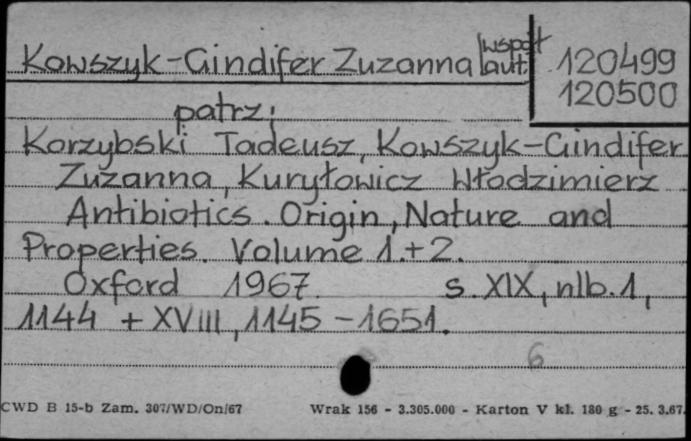 Kowszyk-Gindifer Zuzanna /współaut.
120499
120500
patrz:
Korzybski Tadeusz, Kowszyk-Gindifer
Zuzanna, Kuryłowicz Włodzimierz
Antibiotics. Origin, Nature and
Properties. Volume 1.+2.
Oxford 1967 s. XIX, nlb.1,
1144 + XVIII, 1145-1651.
6
CWD B 15-b Zam. 307/WD/On/67 Wrak 156 - 3.305.000 - Karton V kl. 180 g - 25. 3.67.